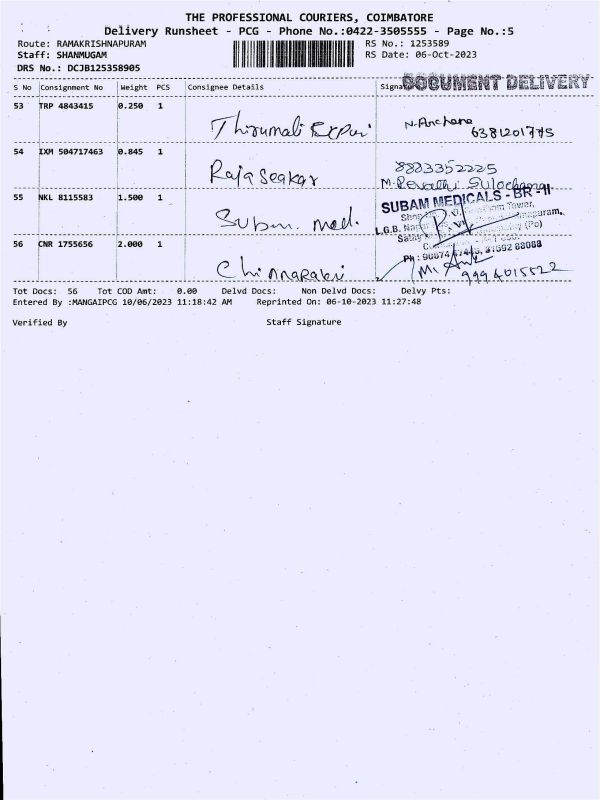 THE PROFESSIONAL COURIERS, COIMBATORE
Delivery Runsheet - PCG - Phone No.:0422-3505555 - Page No.:5
Route: RAMAKRISHNAPURAM
RS No.: 1253589
Staff: SHANMUGAM
RS Date: 06-Oct-2023
DRS No.: DCJB125358905
DOCUMENT DELIVERY
S No Consignment No Weight PCS Consignee Details
53 TRP 4843415 0.250 1
Thirumali
6381201775
54 IXM 504717463 0.845 1
Raja Seakar
8883352225
M. Revathi Sulochana
55 NKL 8115583 1.500 1
Subm. med.
SUBAM MEDICALS - BR -II
Tower,
L.G.B.
(Po)
56 CNR 1755656 2.000 1
Ph : 98674 81592 88088
9994015522
Tot Docs: 56 Tot COD Amt: 0.00 Delvd Docs: Non Delvd Docs: Delvy Pts:
Entered By :MANGAIPCG 10/06/2023 11:18:42 AM Reprinted On: 06-10-2023 11:27:48
Verified By Staff Signature